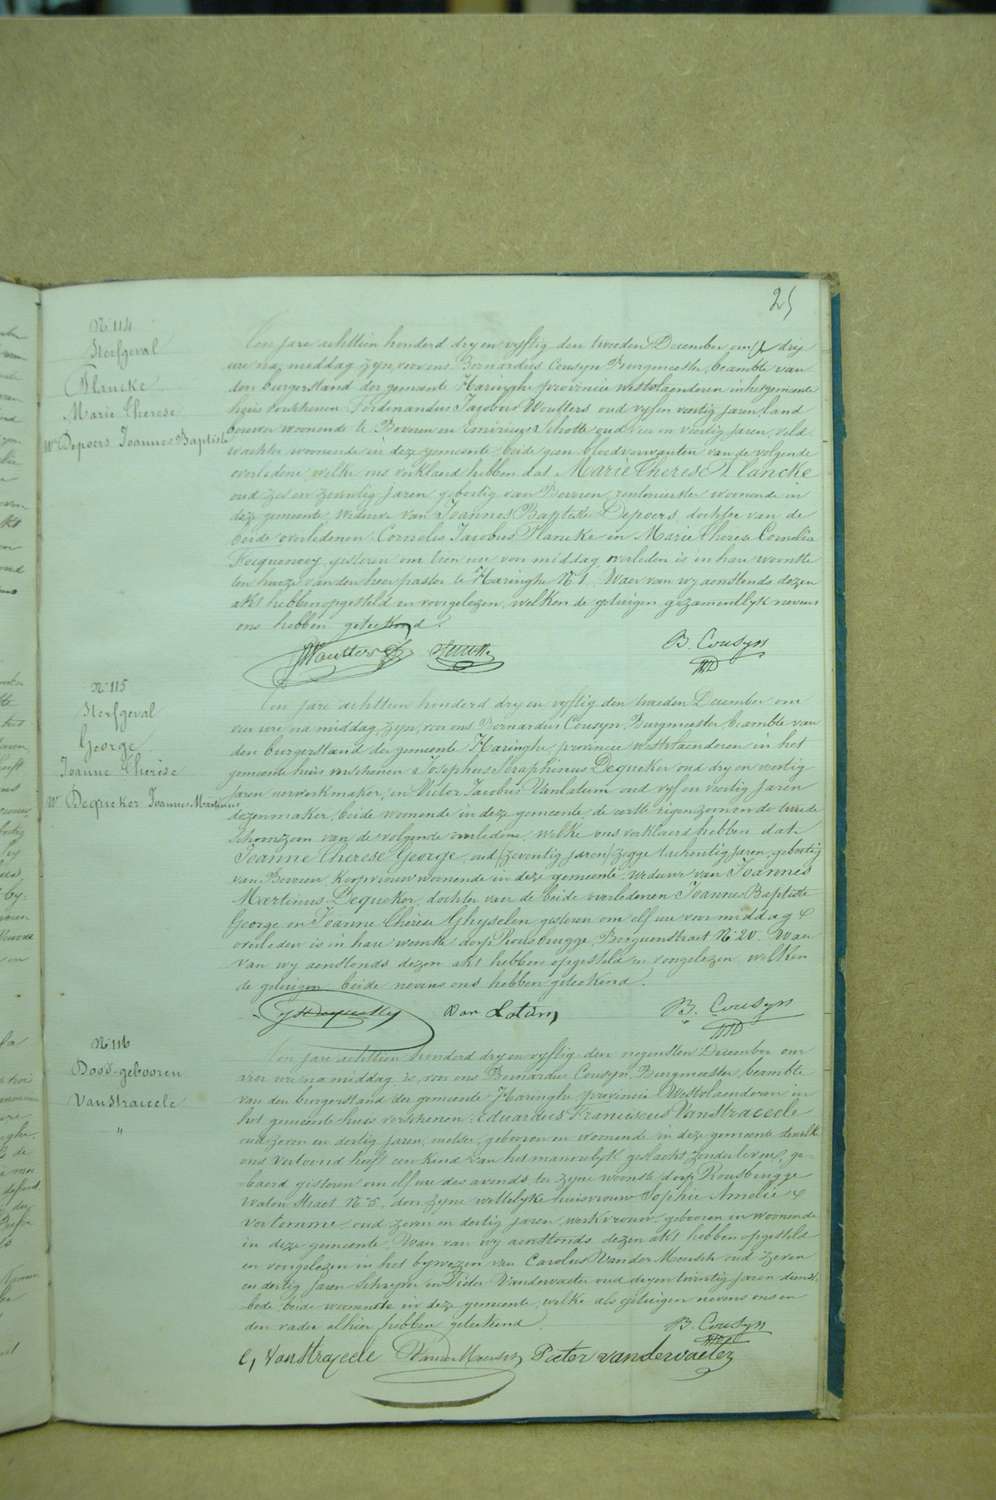 25
N° 114
Sterfgeval
Plancke
Marie Therese
We Depoers Joannes Baptiste
Ten jare achttien honderd dry en vyftig den tweeden December om dry
ure na middag zyn voor ons Bernardus Cousyn Burgmeester, beambte van
den burgerstand der gemeente Haringhe provincie westvlaenderen in het gemeente
huis verschenen Ferdinandus Jacobus Woutters oud vyf en veertig jaren, land
bouwer woonende te Beveren en Schotte oud en veertig jaren, veld
wachter woonende in deze gemeente, beide geen bloedverwanten van de volgende
overledene welke ons verklaerd hebben dat Marie Therese Plancke
oud zes en zeventig jaren gebortig van Beveren, rentenierster woonende in
deze gemeente, weduwe van Joannes Baptiste Depoers, dochter van de
beide overledenen Cornelis Jacobus Plancke en Marie Therese Cornelia
gisteren om tien ure voor middag overleden is in hare woonste
ten huize van den heer pastor te Haringhe N° 1. Waer van wy aenstonds dezen
akt hebben opgesteld en voorgelezen, welken de getuigen gezamentlyk nevens
ons hebben geteekend.
JWoutters Schotte B. Cousyn
N° 115
Sterfgeval
George
Joanne Therise
We Dequeker Joannes Martinus
Ten jare achttien honderd dry en vyftig den tweeden December om
vier ure na middag, zyn, voor ons Bernardus Cousyn, Burgmeester beambte van
den burgerstand der gemeente Haringhe, provincie westvlaenderen in het
gemeente huis verschenen Josephus Seraphinus Dequeker oud dry en veertig
jaren uerwerkmaker, en Victor Jacobus Vanlatum oud vyf en veertig jaren
dezenmaker, beide woonende in deze gemeente, de eerste eigen zoon en de tweede
schoonzoon van de volgende overledene, welke ons verklaerd hebben dat
Joanne Therese George, oud (zeventig jaren) zegge tachentig jaren, gebortig
van Beveren, woonende in deze gemeente, weduwe van Joannes
Martinus Dequeker, dochter van de beide overledenen Joannes Baptiste
George en Joanne Thérèse Ghyselen gisteren om elf ure voor middag
overleden is in hare woonste dorp Rousbrugge, Bergenstraet N° 20. Waer
van wy aenstonds dezen akt hebben opgesteld en voorgelezen welken
de getuigen beide nevens ons hebben geteekend.
JSDequeker Van Latum B. Cousyn
N° 116
Dood-gebooren
VanStraceele
"
Ten jare achttien honderd dry en vyftig den negensten December om
vier ure na middag is, voor ons Bernardus Cousyn, Burgmeester, beambte
van den burgerstand der gemeente Haringhe provincie Westvlaenderen in
het gemeente huis verschenen Eduardus Franciscus VanStraceele
oud zeven en dertig jaren, melder, gebooren en woonende in deze gemeente dewelk
ons vertoond heeft een kind van het mannelyk geslacht zonder leven, ge-
baerd gisteren om elf ure des avonds ter zyne woonste dorp Rousbrugge
waten straet N° 5, door zyne wettelyke huisvrouw Sophie Amelie
Vertemme oud zeven en dertig jaren, werkvrouw gebooren en woonende
in deze gemeente. Waer van wy aenstonds dezen akt hebben opgesteld
en voorgelezen in het bywezen van Carolus Vander Meersch oud zeven
en dertig jaren schryver en Pieter Vandewaeter oud dry en twintig jaren dienst-
bode beide woonende in deze gemeente, welke als getuigen nevens ons en
den vader alhier hebben geteekend. B. Cousyn
E, vanstraceele VanderMeersch Pieter vandewaeter